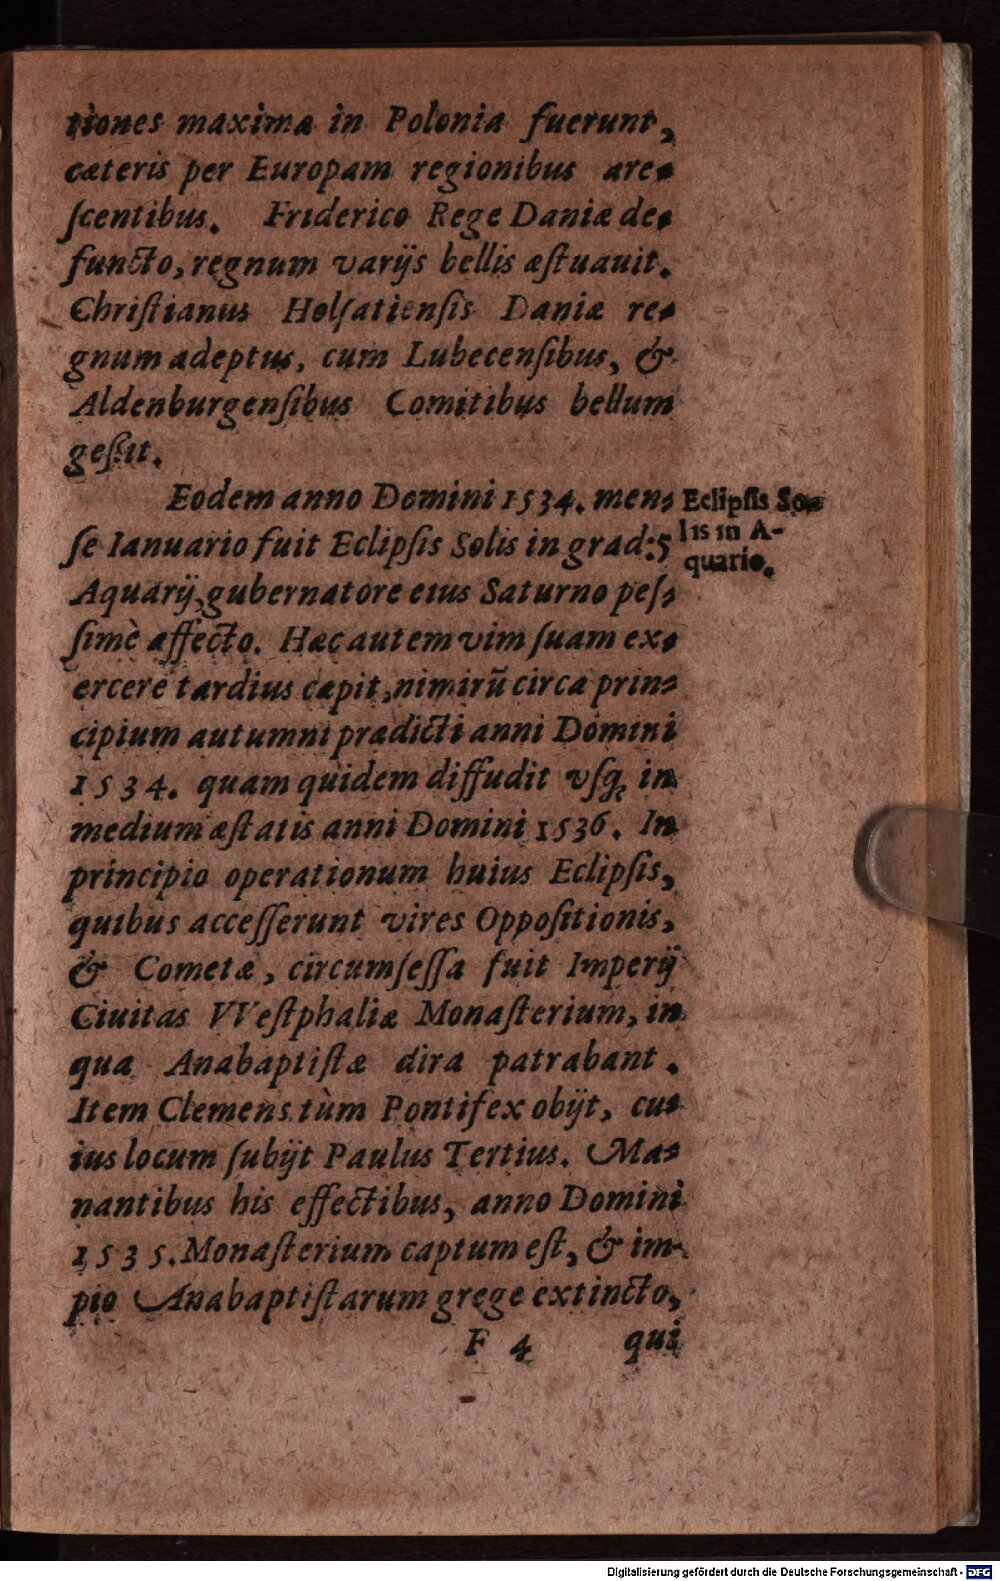 tiones maximæ in Polonia fuerunt,
cæteris per Europam regionibus are-
ſcentibus. Friderico Rege Daniæ de-
functo, regnum varijs bellis æſtuauit.
Chriſtianus Holſatienſis Daniæ re-
gnum adeptus, cum Lubecenſibus, &
Aldenburgenſibus Comitibus bellum
geſsit.
Eodem anno Domini 1534. men-
ſe Ianuario fuit Eclipſis Solis in grad: 5
Aquarij, gubernatore eius Saturno peſ-
ſimè affecto. Hæc autem vim ſuam ex-
ercere tardius cæpit, nimirũ circa prin-
cipium autumni prædicti anni Domini
1534. quam quidem diffudit vſq; in
medium æſtatis anni Domini 1536. In
principio operationum huius Eclipſis,
quibus acceſſerunt vires Oppoſitionis,
& Cometæ, circumſeſſa fuit Imperij
Ciuitas VVeſtphaliæ Monaſterium, in
qua Anabaptiſtæ dira patrabant.
Item Clemens tùm Pontifex obijt, cu-
ius locum ſubijt Paulus Tertius. Ma-
nantibus his effectibus, anno Domini
1535. Monaſterium captum eſt, & im-
pio Anabaptiſtarum grege extincto,
F 4 qui
Eclipſis So-
lis in A-
quario.
Digitalisierung gefördert durch die Deutsche Forschungsgemeinschaft - DFG